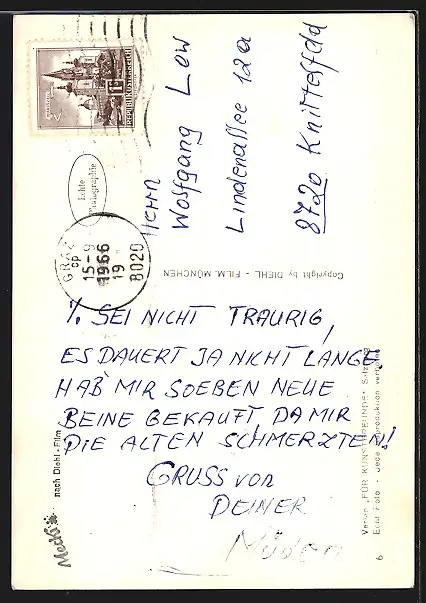 Herrn
Wolfgang Low
Lindenallee 12a
8720 Knittelfeld
REPUBLIK ÖSTERREICH
Echte
Photographie
GRAZ
15-9
1966
19
8020
Copyright by DIEHL-FILM, MÜNCHEN
%. SEI NICHT TRAURIG,
ES DAUERT JA NICHT LANGE
HAB MIR SOEBEN NEUE
BEINE GEKAUFT, DA MIR
DIE ALTEN SCHMERZTEN!
GRUSS von
DEINER
Mecki
nach Diehl-Film
Verlag „FÜR KUNSTFREUNDE"
Echt Foto - Jede Reproduktion verboten
6